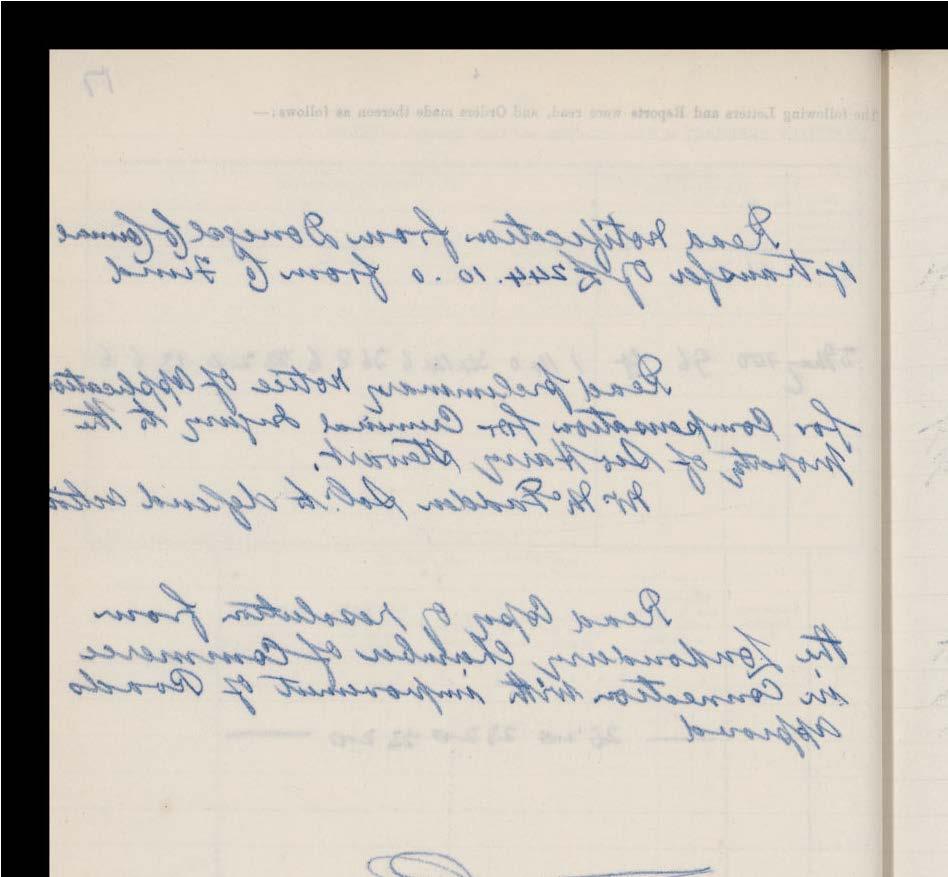 17
The following Letters and Reports were read, and Orders made thereon as follows:—
Read Notification from Donegal Co Council
of transfer of £244.10.0 from Co Fund
Read preliminary Notice of Application
for Compensation for Criminal Injury to the
property of Sir Harry Stewart.
Mr McFadden Sol. to defend action
Read Copy of resolution from
the Londonderry Chamber of Commerce
in Connection with improvement of Roads
Approved